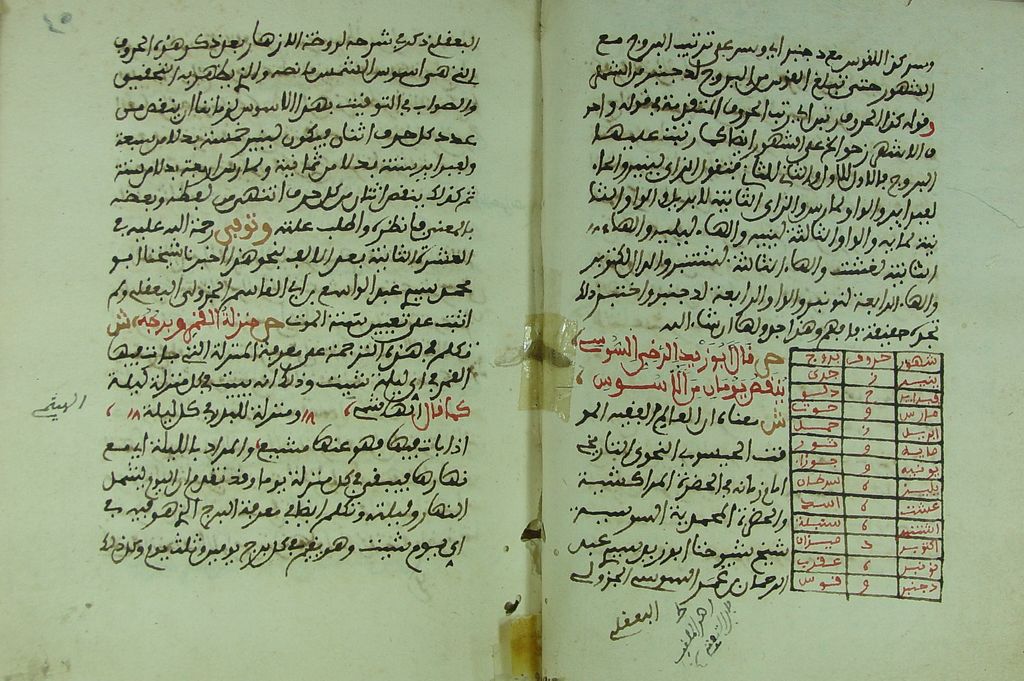 وسر كذا للقوس مع دجنبر اي وسر على ترتيب البروج مع
الشهور حتى تبلغ القوس من البروج لدجنبر من الشهور
وقوله كذا الحروف رتبن اي رتب الحروف المتقدمة في قوله
الاشهر على الشهور ايضا كما رتبت عليها
البروج بالاول للاول والثاني للثاني فتقول الزاي لينير والحاء
لفبراير والواو لمارس والزاي الثانية لابريل والواو الثا
نية لمايه والواو الثالثة ليونيه والهاء ليليه والهاء
الثانية لغشت والهاء الثالثة لشتنبر والدال لاكتوبر
والهاء الرابعة لنونبر والواو الرابعة لدجنبر
وهذا جدولها
شهور حروف بروج
ينير ز جدي
فبراير ح دلو
مارس و حوت
ابريل ز حمل
مايه و ثور
يونيه و جوزا
يليه ه سرطان
غشت ه اسد
اشتنبر ه سنبلة
اكتوبر د ميزان
نونبر ه عقرب
دجنبر و قوس
ص قال ابو زيد الرضى السوسي
ينقص يومان من الاسوس
ش معناه ان العالم الفقيه المو
قت الحيسوبي النحوي التاريخي
امام زمانه في الحضرة المراكشية
والحضرة المحمدية السوسية
شيخ شيوخنا ابو زيد سيدي عبد
الرحمان بن عمر السوسي الجزولي
البعقلي
البعقلي ذكر في شرحه لروضة الازهار بعد ذكر هذه الحروف
التي هي اسوس الشمس ما نصه والذي يظهر به التحقيق
والصواب في التوقيت بهذا الاسوس لزماننا ان ينقص من
عدد كل حرف اثنان فيكون لينير خمسة بدلا من سبعة
ولفبراير ستة بدلا من ثمانية ولمارس اربعة بدلا من ستة
ثم كذلك ينقص اثنان من كل حرف انتهى من لفظه وبعضه
بالمعنى فانظره واطلب علته وتوفي رحمة الله عليه في
العشرة الثانية بعد الالف بنحو هذا اخبرنا شيخنا ابو
محمد سيدي عبد الواسع بن ابي القاسم الجزولي البعقلي ولم
اثبت على تعيين سنة الموت ص منزلة القمر وبرجه ش
تكلم في هذه الترجمة على معرفة المنزلة التي حل فيها
القمر في اي ليلة شئت وذلك انه يبيت في كل منزلة ليلة
كما قال ومنزلة للبدر في كل ليلة
اذا بات فيها فهو عنها مشيع والمراد بالليلة اي مع
نهارها فيبقى في كل منزلة يوما وقد تقدم ان اليوم يشمل
النهار وليلته وتكلم ايضا في معرفة البرج الذي هو فيه في
اي يوم شئت وهو يقيم في كل برج يومين وثلث يوم وكل ذلك